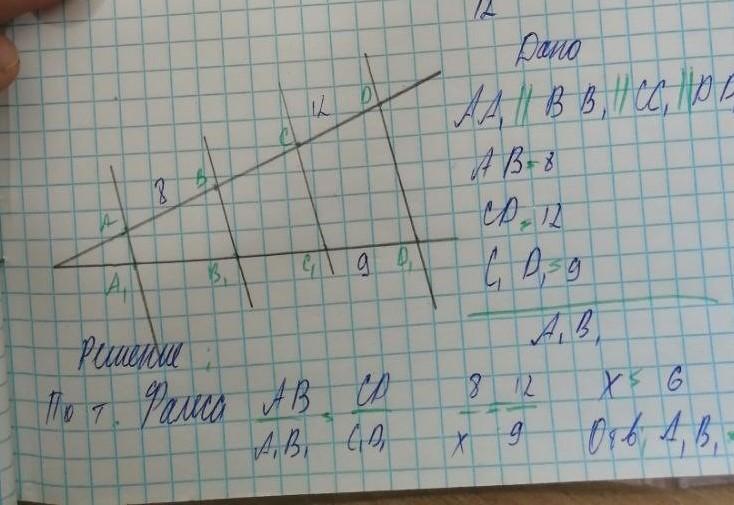 12
Дано
AA₁ || BB₁ || CC₁ || DD
AB = 8
CD = 12
C₁D₁ = 9
A₁B₁
A
8
B
C
12
D
A₁
B₁
C₁
9
D₁
Решение:
По т. Фалеса AB/A₁B₁ = CD/C₁D₁ 8/x = 12/9 x = 6
Отв: A₁B₁ =